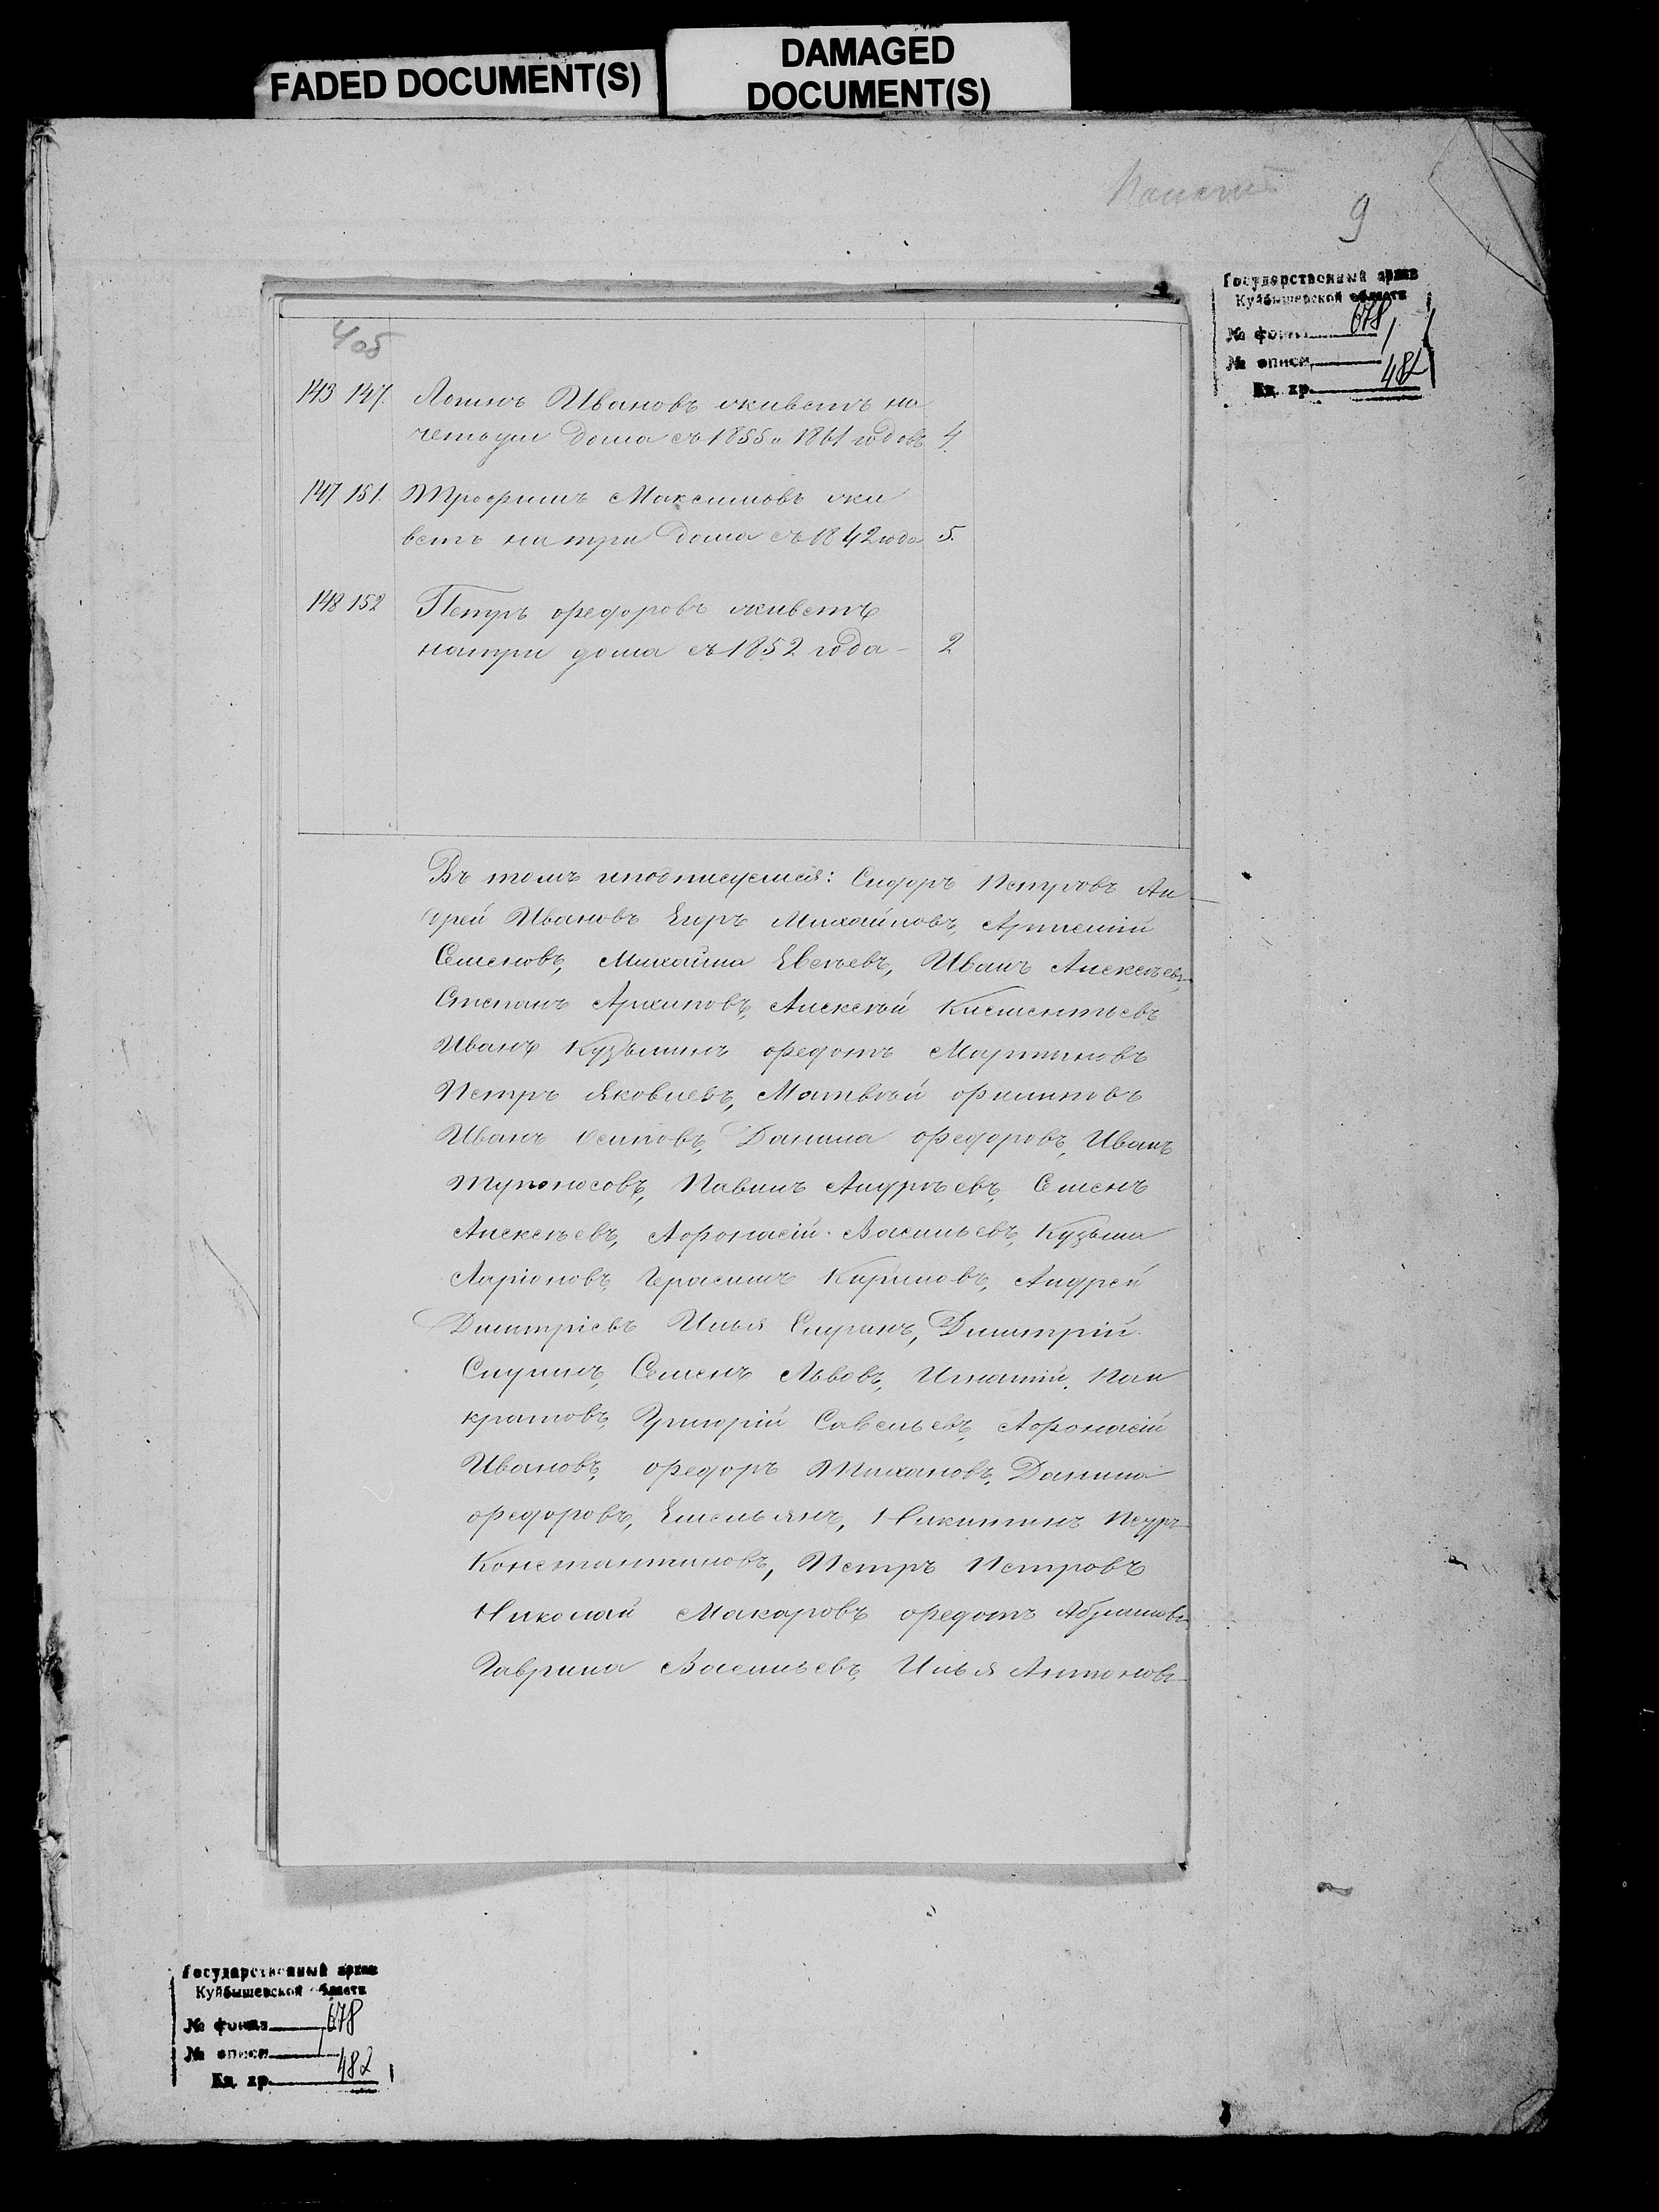 FADED DOCUMENT(S)
DAMAGED
DOCUMENT(S)
9
Государственный архив
Куйбышевской области
№ фонда 678
№ описи 1
Ед. хр. 482
4 об
143 147. Логинъ Ивановъ живетъ на
четыри дома съ 1855 и 1861 годовъ 4.
147 151. Трофимъ Максимовъ жи
ветъ на три дома съ 1842 года 5.
148 152 Петръ Федоровъ живетъ
на три дома съ 1852 года – 2
Въ томъ и подписуемся: Сидоръ Петровъ Ан
дрей Ивановъ Егоръ Михайловъ, Артемий
Семеновъ, Михайла Евсеевъ, Иванъ Алексѣевъ,
Степанъ Архиповъ, Алексѣй Клементьевъ
Иванъ Кузьминъ Федотъ Мартиновъ
Петръ Яковлевъ, Матвѣй Филиповъ
Иванъ Осиповъ, Данила Федоровъ, Иванъ
Тупоносовъ, Павилъ Андрѣевъ, Семенъ
Алексѣевъ, Афонасій Васильевъ, Кузьма
Ларіоновъ, Герасимъ Кариловъ, Андрей
Димитріевъ Илья Сиуринъ, Димитрій
Сиуринъ, Семенъ Львовъ, Игнатій. Пан
кратовъ, Григорій Савельевъ, Афонасій
Ивановъ, Федоръ Тихановъ, Данила
Федоровъ, Емельянъ, Никитинъ
Константиновъ, Петръ Петровъ
Николай Макаровъ Федотъ Абрамовъ
Гаврила Васильевъ, Илья Антоновъ
Государственный архив
Куйбышевской области
№ фонда 678
№ описи 1
Ед. хр. 482